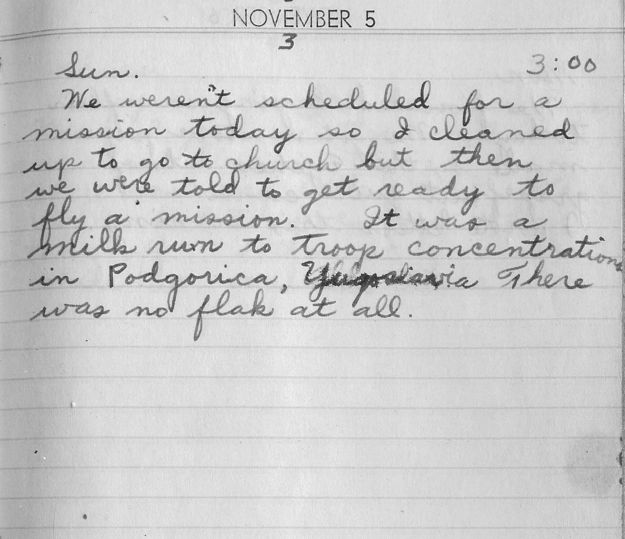 NOVEMBER 5
3
Sun. 3:00
We weren't scheduled for a
mission today so I cleaned
up to go to church but then
we were told to get ready to
fly a mission. It was a
milk run to troop concentrations
in Podgorica, Yugoslavia There
was no flak at all.